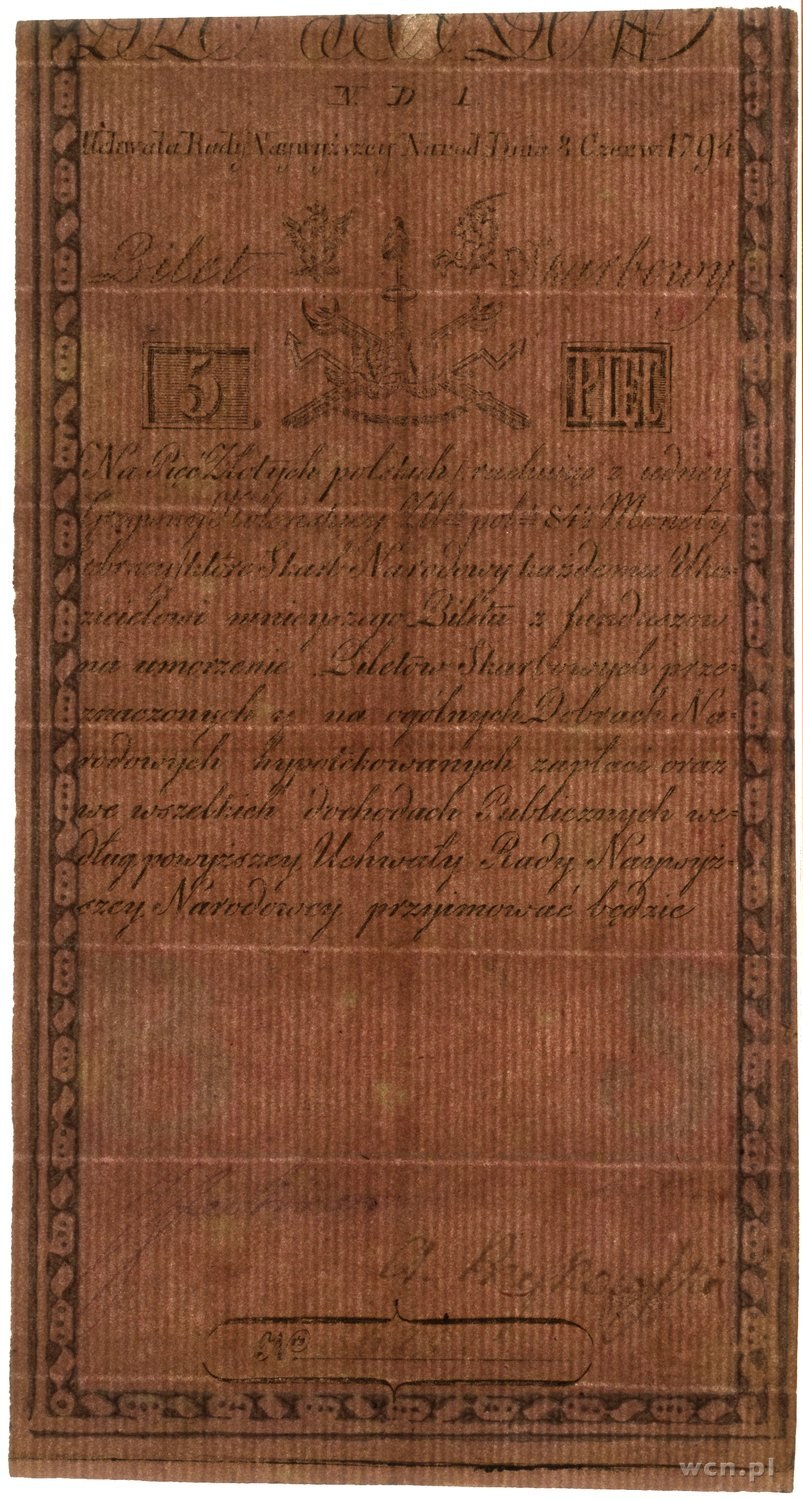 N. D 1
Uchwała Rady Naywyższey Narod: Dnia 8 Czerw: 1794
Bilet Skarbowy
5. PIĘĆ
Na Pięć Złotych polskich rachuiąc z iedney
Grzywny Kolońskiey Zł: pol: 84½ Monety
Skarb Narodowy każdemu Oka-
zicielowi ninieyszego Biletu z funduszow
na umorzenie Biletow Skarbowych prze-
znaczonych y na ogólnych Dobrach Na-
rodowych hypotekowanych zapłaci oraz
we wszelkich dochodach Publicznych we-
dług powyższey Uchwały Rady Naywyż-
szey Narodowey przyimować będzie
Nº
wcn.pl